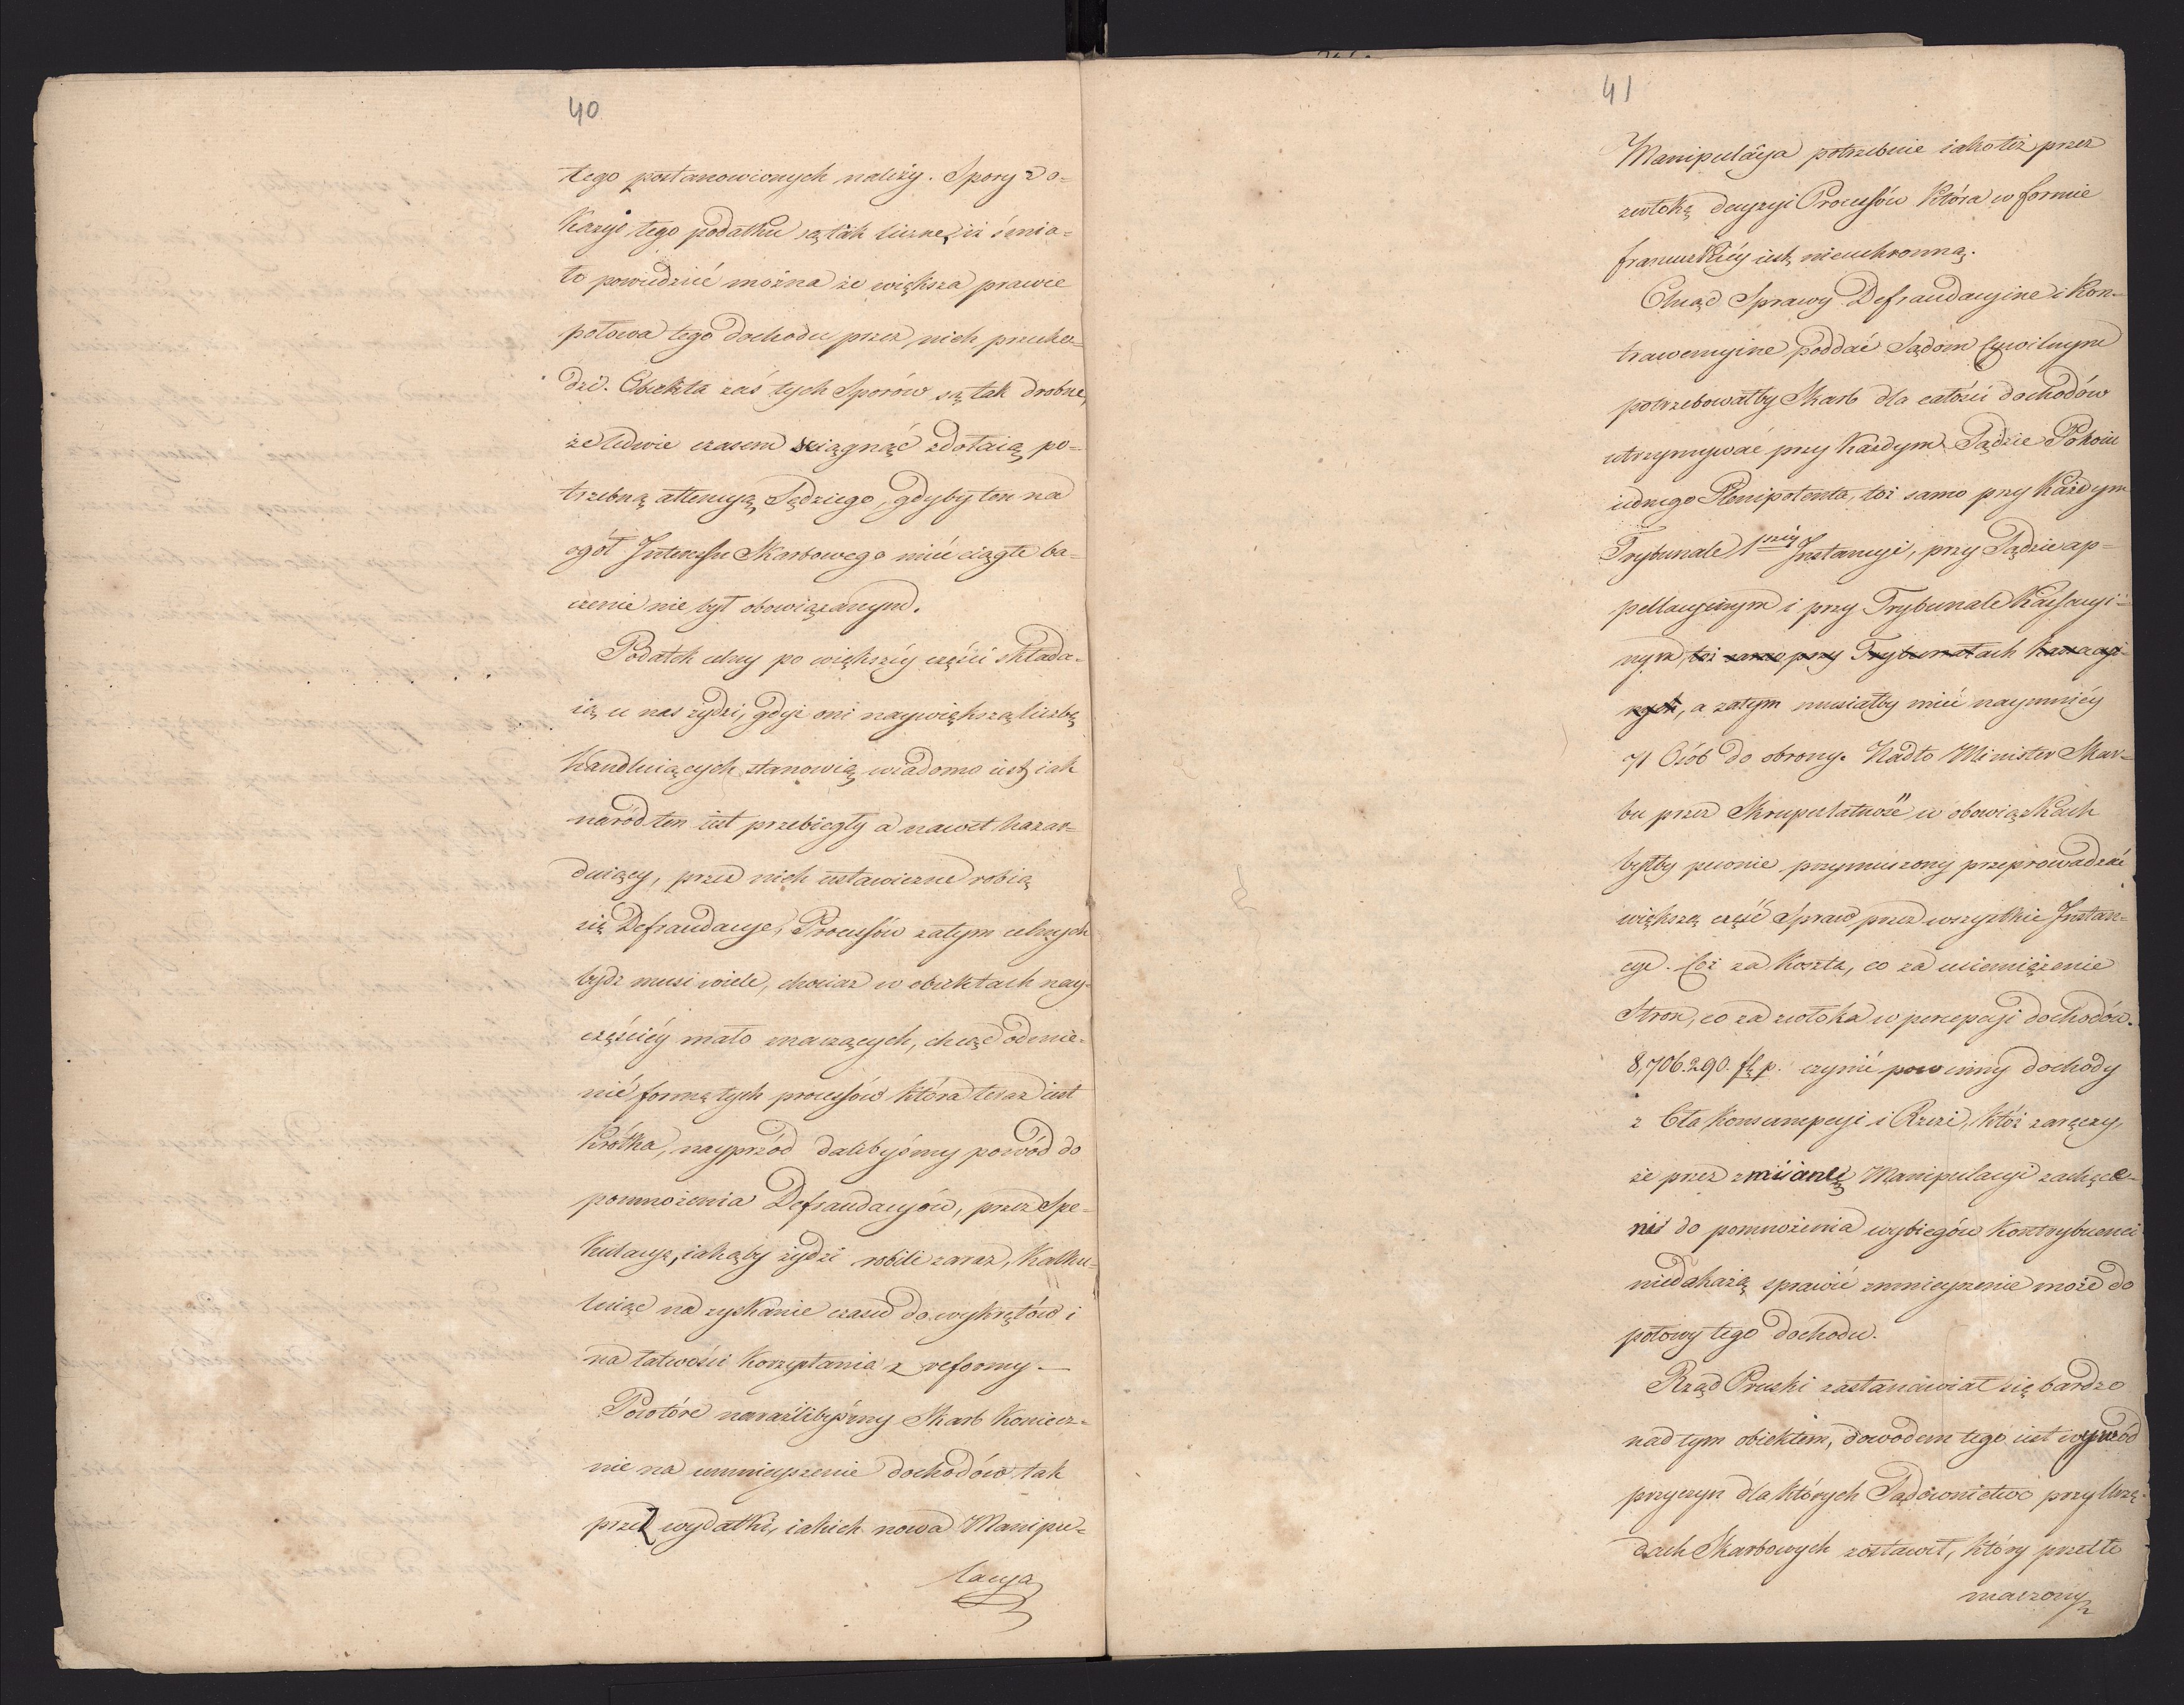 40
tego postanowionych należy. Spory z o-
kazyi tego podatku są tak liczne, iż śmia-
ło powiedzieć można że większa prawie
połowa tego dochodu przez nich przecho-
dzi. Obiekta zaś tych Sporów są tak drobne,
że ledwie czasem ściągnąć zdołaią po-
trzebną attencyą Sędziego, gdyby ten na
ogół Interessu Skarbowego mieć ciągłe ba-
czenie nie był obowiązanym.
Podatek celny po większéy części składa-
ią u nas żydzi, gdyż oni naywiększą liczbę
handluiących stanowią, wiadomo iest, iak
naród ten iest przebiegły a nawet hazar-
duiący, przez nich ustawiczne robią
się Defraudacye, Processów zatym celnych
bydz musi wiele, chociaz w obiektach nay-
częściéy mało znaczących, chcąc odmie-
nić formę tych processów która teraz iest
krótka, nayprzód dalibyśmy powód do
pomnożenia Defraudacyów, przez Spe-
kulacyą, iakąby żydzi robili zaraz, kalku-
luiąc na zyskanie czasu do wykrętów i
na łatwości korzystania z reformy. —
Powtóre naraźilibyśmy Skarb koniecz-
nie na umnieyszenie dochodów tak
przez wydatki, iakich nowa Manipu-
lacya
41
Manipulacya potrzebuie iakoteż przez
zwłokę decyzyi Processów która w formie
francuzkiéy iest, nieuchronną.
Chcąc Sprawy Defraudacyine i Kon-
trawencyine poddać Sądom Cywilnym
potrzebowałby Skarb dla całości dochodów
utrzymywać przy każdym Sądzie Pokoiu
iednego Plenipotenta, toż samo przy każdym
Trybunale 1széy Instancyi, przy Sądzie ap-
pellacyinym i przy Trybunale Kassacyi-
nym, toż samo przy Trybunałach Kassacyi-
nych, a zatym musiałby mieć naymniéy
71 Osób do obrony. Nadto Minister Skar-
bu przez Skrupulatność w obowiązkach
byłby pewnie przymuszony przeprowadzać
większą część Spraw przez wszystkie Instan-
cye. Coż za koszta, co za uciemiężenie
Stron, co za zwłoka w percepcyi dochodów.
8,706.290. fl. p. czynić powinny dochody
z Cła Konsumpcyi i Rzezi, któż zaręczy,
że przez zmianę Manipulacyi zachęce-
nie do pomnożenia wybiegów Kontrybuenci
niedokażą sprawić zmnieyszenie może do
połowy tego dochodu.
Rząd Pruski zastanawiał się bardzo
nad tym obiektem, dowodem tego iest wywód
przyczyn dla których Sądownictwo przy Urzę-
dach Skarbowych zostawił, który przetło
maczony